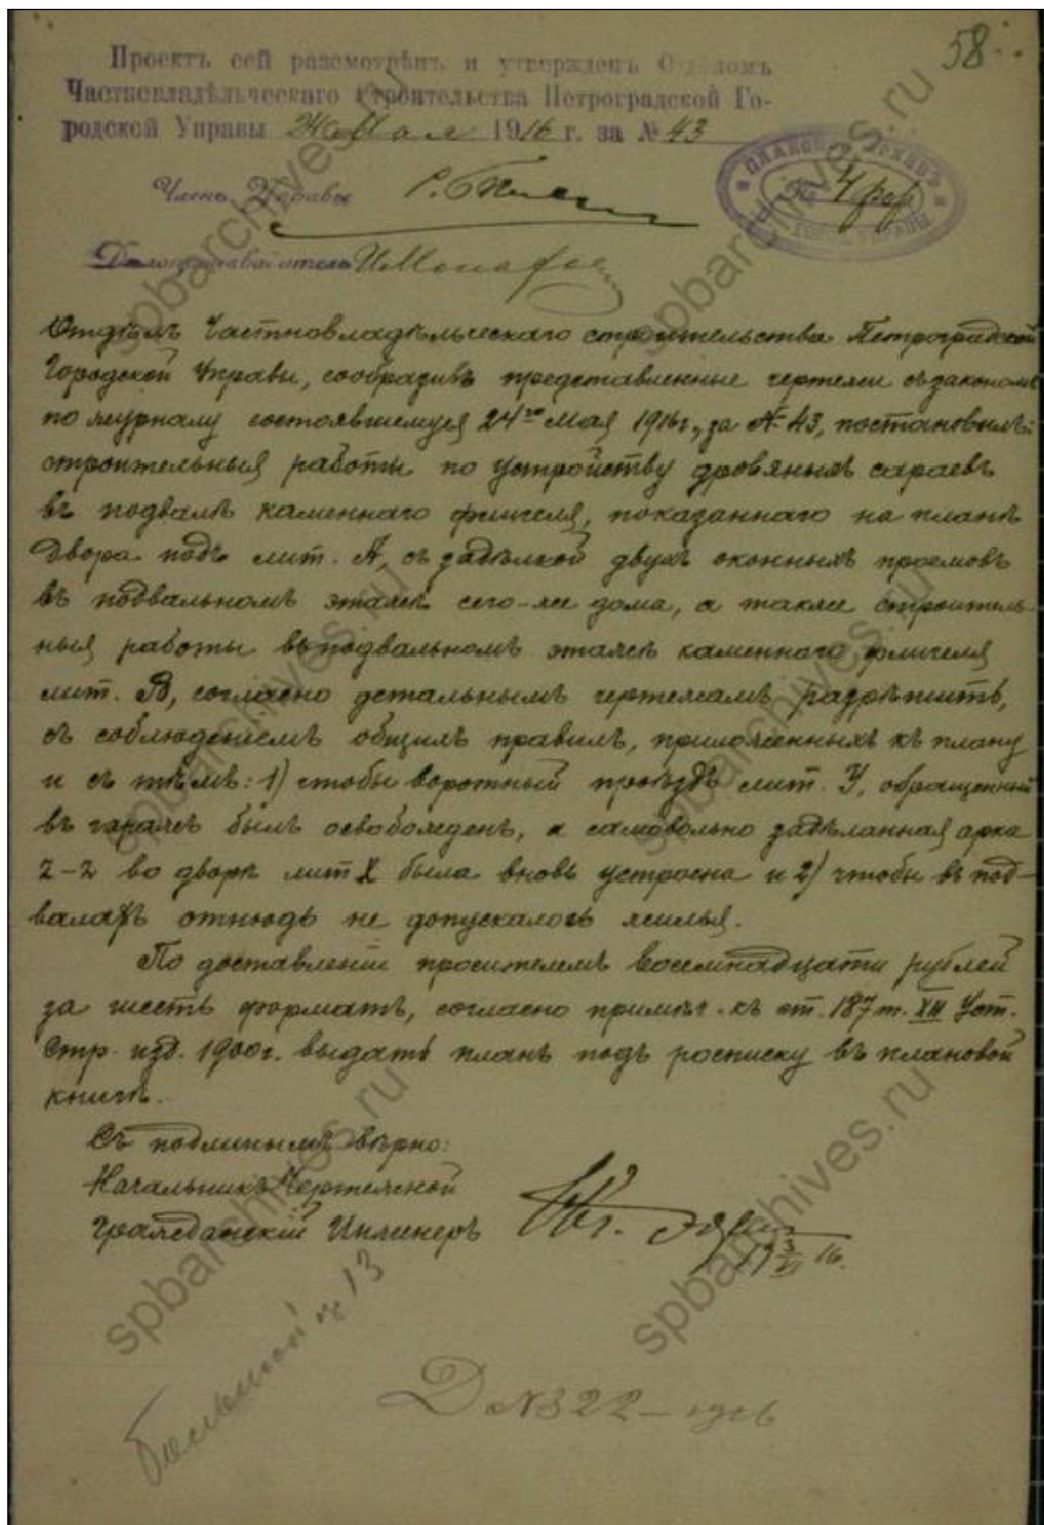 58
Проектъ сей разсмотрѣнъ и утвержденъ Отдѣломъ
Частновладѣльческаго строительства Петроградской Го-
родской Управы 24 Мая 1916 г. за № 43
Членъ Управы
Дѣлопроизводитель
Отдѣлъ Частновладѣльческаго строительства Петроградской
Городской Управы, сообразивъ представленные чертежи съ закономъ
по журналу состоявшемуся 24го Мая 1916 г., за № 43, постановилъ:
строительныя работы по устройству дровяныхъ сараевъ
въ подвалѣ каменнаго флигеля, показаннаго на планѣ
двора подъ лит. А, съ задѣлкой двухъ оконныхъ проемовъ
въ подвальномъ этажѣ сего-же дома, а также строитель-
ныя работы въ подвальномъ этажѣ каменнаго флигеля
лит. В, согласно детальнымъ чертежамъ разрѣшить,
съ соблюденіемъ общихъ правилъ, приложенныхъ къ плану
и съ тѣмъ: 1) чтобы воротный проѣздъ лит. У, обращенный
въ гаражъ былъ освобожденъ, а самовольно задѣланная арка
2-2 во дворѣ лит X была вновь устроена и 2) чтобы въ под-
валахъ отнюдь не допускалось жилья.
По доставленіи просителемъ восемнадцати рублей
за шесть форматъ, согласно примѣч. къ ст. 187 т. XII Уст.
Стр. изд. 1900 г. выдать планъ подъ росписку въ плановой
книгѣ.
Съ подлиннымъ вѣрно:
Начальникъ Чертежной
Гражданскій Инженеръ
19 3/VI 16.
Большой 13
Д №322 – 1916
spbarchives.ru
spbarchives.ru
spbarchives.ru
spbarchives.ru
spbarchives.ru
spbarchives.ru